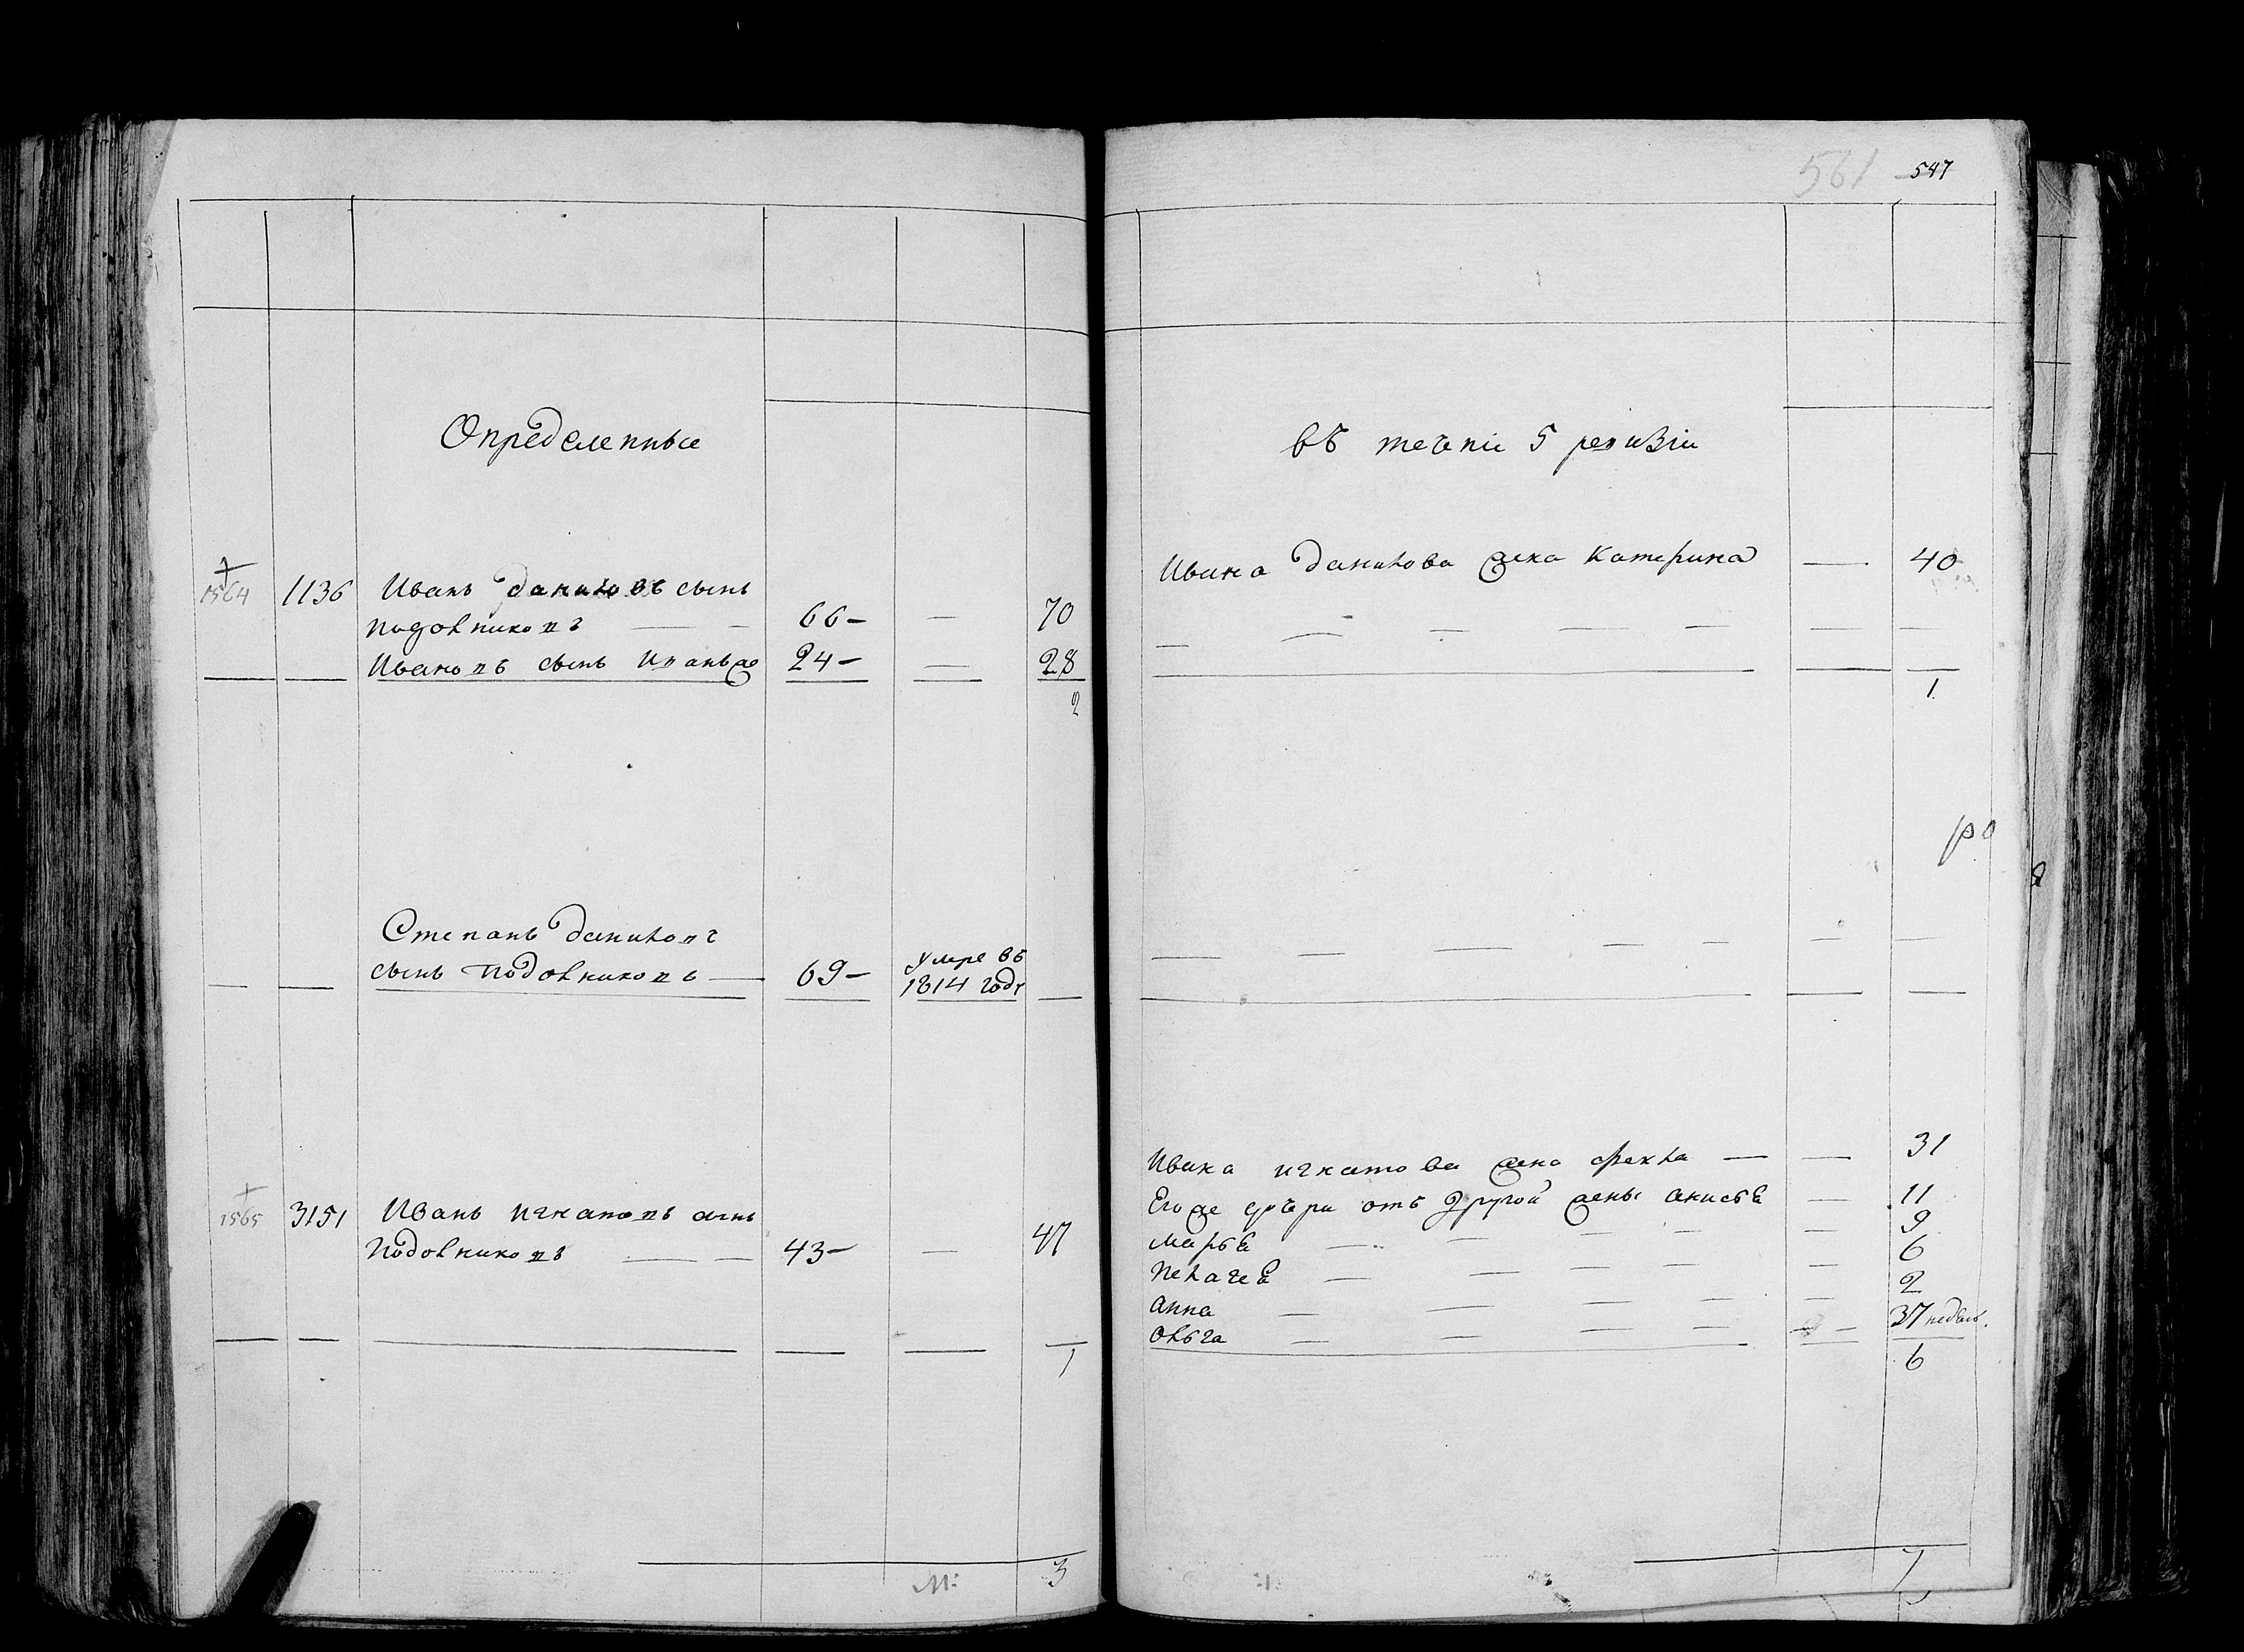 561 547
Определенные
въ течніи 5 ревизіи
1564 1136 Иванъ Даниловъ сынъ
Подовниковъ — — 66 — — 70
Ивановъ сынъ Иванъже 24 — — 28
2
Ивана Данилова жена Катерина — 40
1
Степанъ Даниловъ
сынъ Подовниковъ — 69 —
умре въ
1814 годᲂу
1565 3151 Иванъ Игнатовъ сынъ
Подовниковъ — — 43 — — 47
1
Ивана Игнатова жена Фекла — — 31
Егоже дочери отъ другой жены Анисья — 11
Марья — — — — — 9
Пелагея — — — — — 6
Анна — — — — — 2
Ольга — — — — — 37 недель.
6
М: 3
7